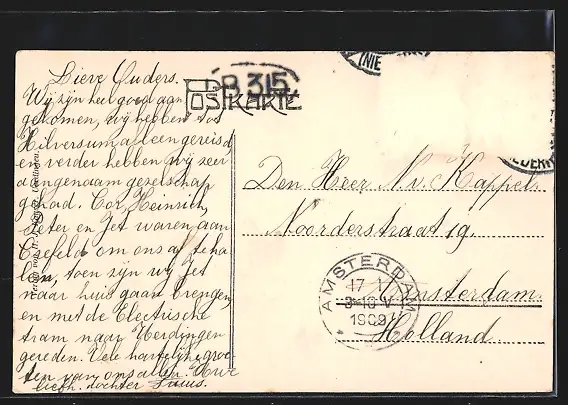 Lieve Ouders.
Wij zijn heel goed aan
gekomen, wij hebben tot
Hilversum alleen gereisd
en verder hebben wij zeer
aangenaam gezelschap
gehad. Cor, Heinrich,
Peter en Jet waren aan
Crefeld om ons af te ha
len, toen zijn wij Jet
naar huis gaan brengen,
en met de Electrische
tram naar Uerdingen
gereden. Vele hartelijke groe
ten van ons allen. Uwe
liefh. dochter
POSTKARTE
B 315
(NIE
EDERL
Den Heer N. v. Kappel.
Noorderstraat 19.
Amsterdam.
Holland.
AMSTERDAM
17 1
9-10 V
1909